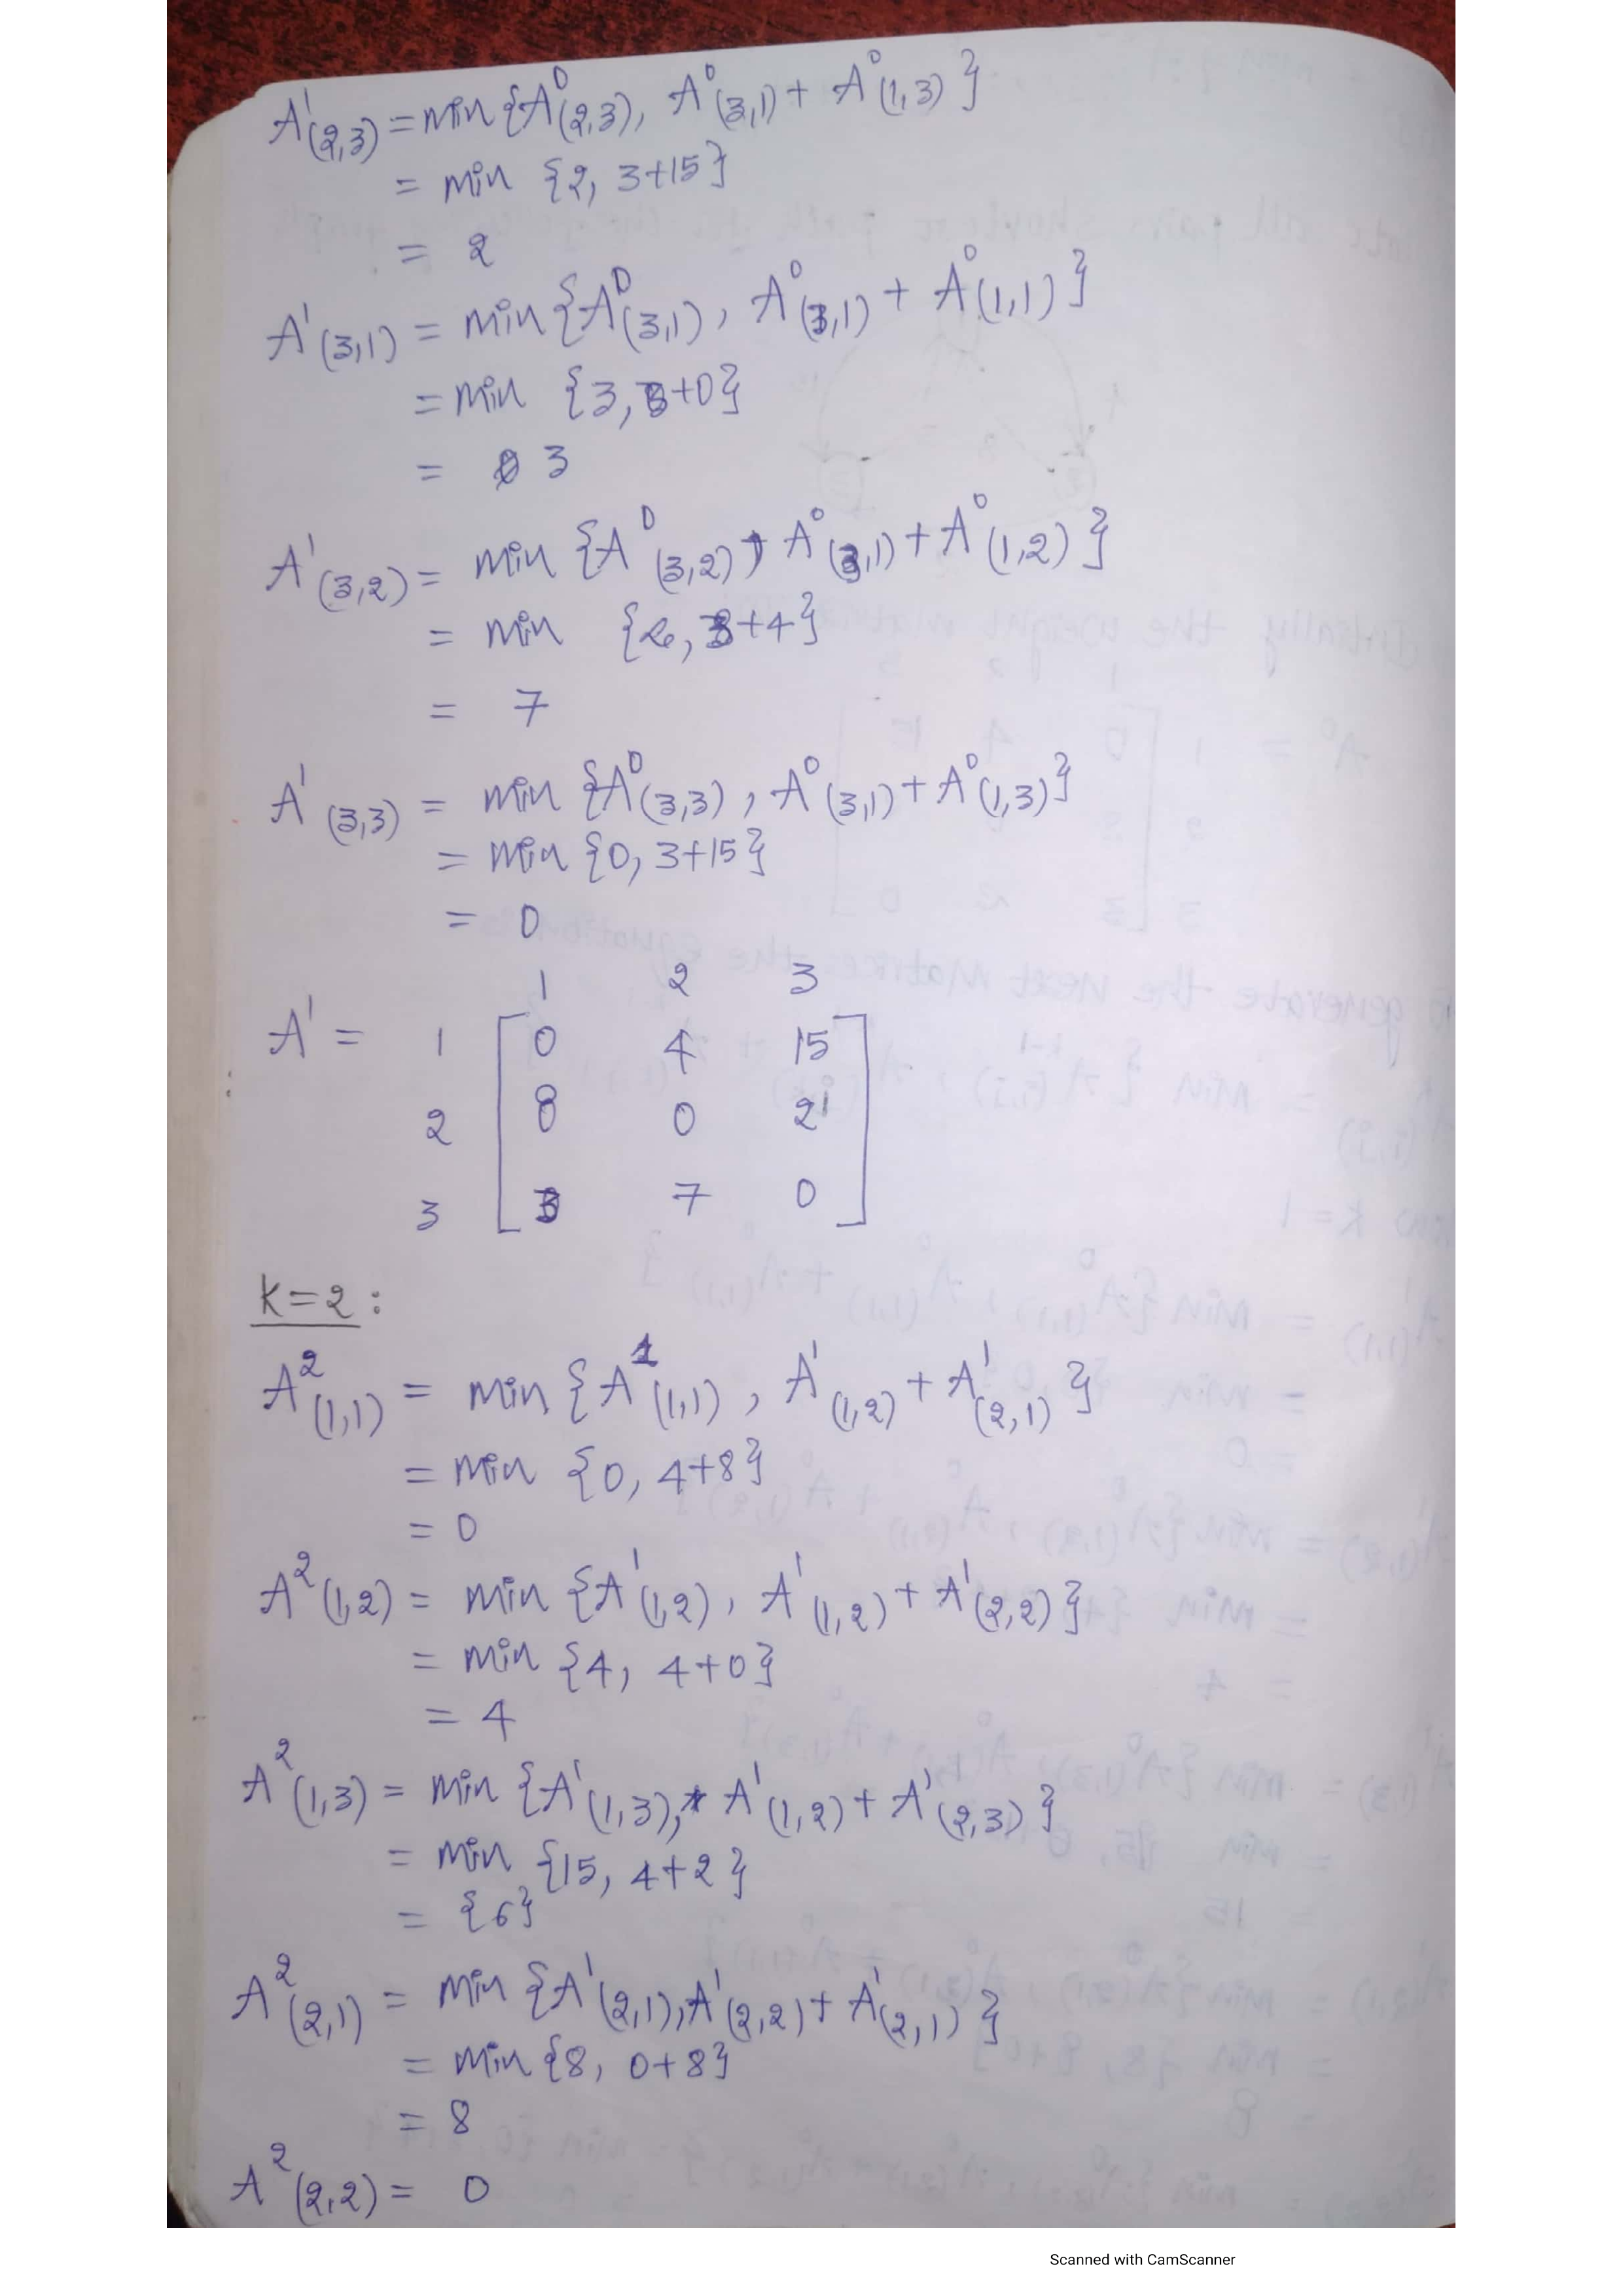 A¹(2,3) = min {A⁰(2,3), A⁰(3,1) + A⁰(1,3)}
= min {2, 3+15}
= 2
A¹(3,1) = min {A⁰(3,1), A⁰(3,1) + A⁰(1,1)}
= min {3, 3+0}
= 3
A¹(3,2) = min {A⁰(3,2), A⁰(3,1) + A⁰(1,2)}
= min {∞, 3+4}
= 7
A¹(3,3) = min {A⁰(3,3), A⁰(3,1) + A⁰(1,3)}
= min {0, 3+15}
= 0
1 2 3
A¹ = 1 [0 4 15]
2 [8 0 2]
3 [3 7 0]
K=2 :
A²(1,1) = min {A¹(1,1), A¹(1,2) + A¹(2,1)}
= min {0, 4+8}
= 0
A²(1,2) = min {A¹(1,2), A¹(1,2) + A¹(2,2)}
= min {4, 4+0}
= 4
A²(1,3) = min {A¹(1,3), A¹(1,2) + A¹(2,3)}
= min {15, 4+2}
= {6}
A²(2,1) = min {A¹(2,1), A¹(2,2) + A¹(2,1)}
= min {8, 0+8}
= 8
A²(2,2) = 0
Scanned with CamScanner